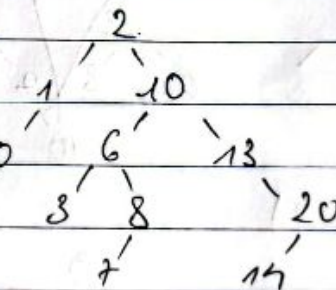 2
1 10
0 6 13
3 8 20
7 14